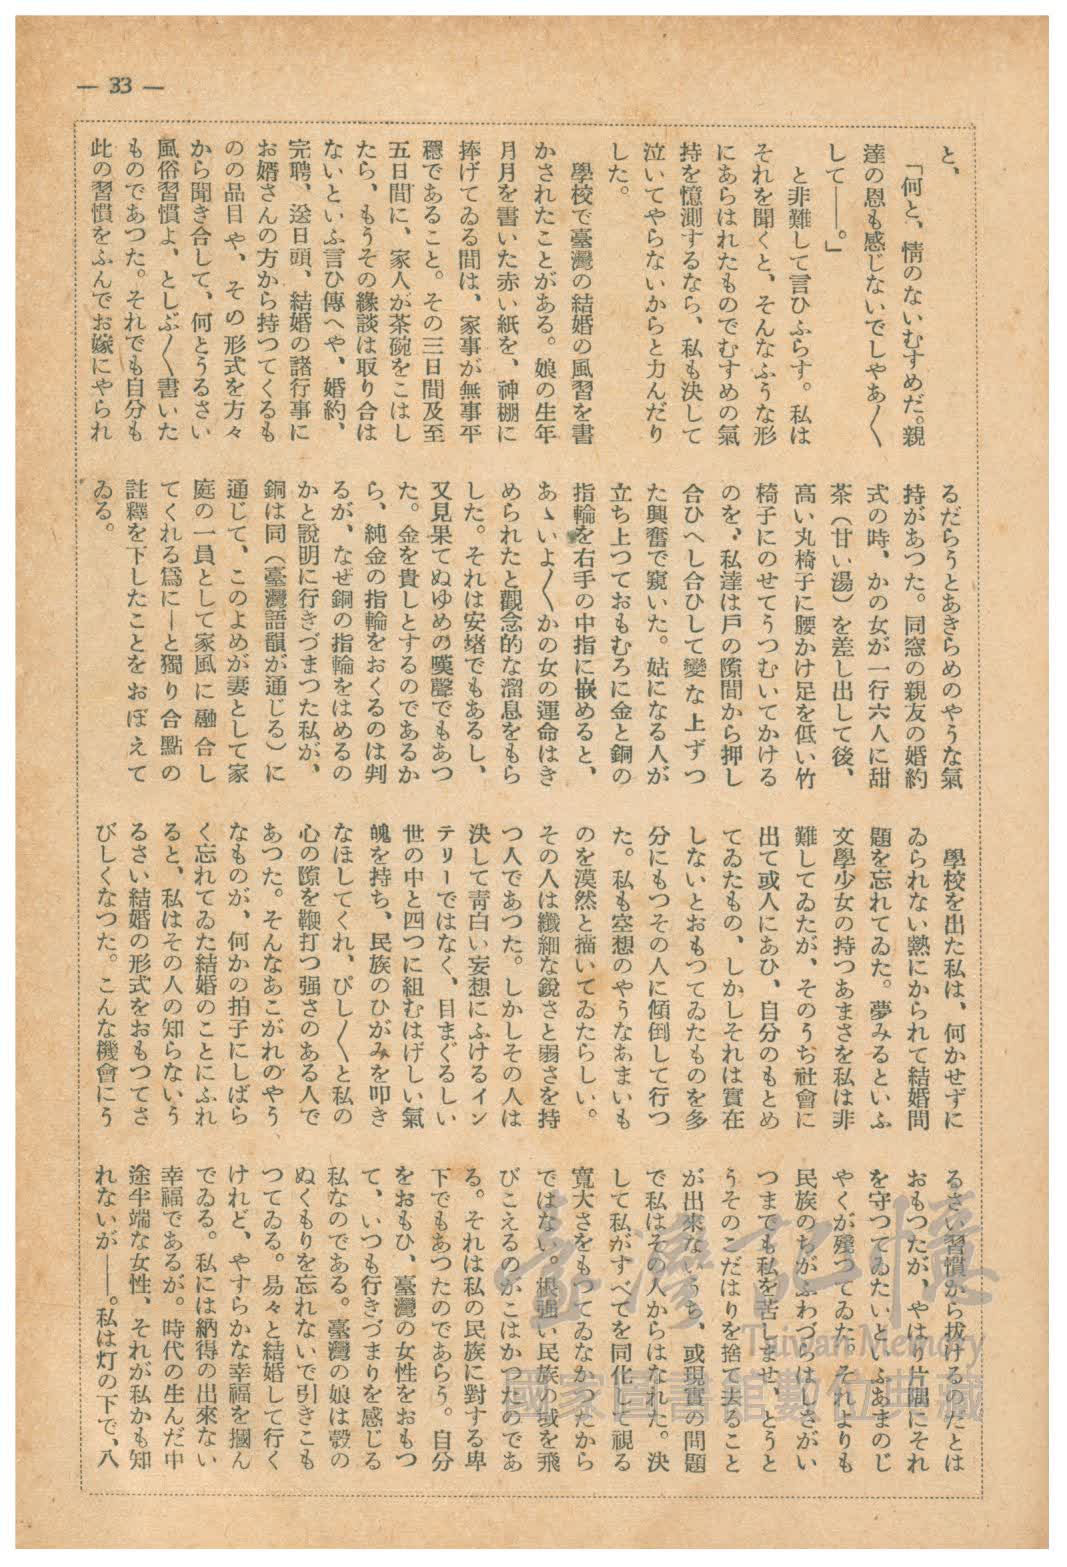 — 33 —
と、
「何と、情のないむすめだ。親
達の恩も感じないでしやあ〱
して——。」
と非難して言ひふらす。私は
それを聞くと、そんなふうな形
にあらはれたものでむすめの氣
持を憶測するなら、私も決して
泣いてやらないからと力んだり
した。
學校で臺灣の結婚の風習を書
かされたことがある。娘の生年
月月を書いた赤い紙を、神棚に
捧げてゐる間は、家事が無事平
穩であること。その三日間及至
五日間に、家人が茶碗をこはし
たら、もうその緣談は取り合は
ないといふ言ひ傳へや、婚約、
完聘、送日頭、結婚の諸行事に
お婿さんの方から持つてくるも
のの品目や、その形式を方々
から聞き合して、何とうるさい
風俗習慣よ、としぶ〱書いた
ものであつた。それでも自分も
此の習慣をふんでお嫁にやられ
るだらうとあきらめのやうな氣
持があつた。同窓の親友の婚約
式の時、かの女が一行六人に甜
茶（甘い湯）を差し出して後、
高い丸椅子に腰かけ足を低い竹
椅子にのせてうつむいてかける
のを、私達は戸の隙間から押し
合ひへし合ひして變な上ずつ
た興奮で窺いた。姑になる人が
立ち上つておもむろに金と銅の
指輪を右手の中指に嵌めると、
あゝいよ〱かの女の運命はき
められたと觀念的な溜息をもら
した。それは安堵でもあるし、
又見果てぬゆめの嘆聲でもあつ
た。金を貴しとするのであるか
ら、純金の指輪をおくるのは判
るが、なぜ銅の指輪をはめるの
かと說明に行きづまつた私が、
銅は同（臺灣語韻が通じる）に
通じて、このよめが妻として家
庭の一員として家風に融合し
てくれる爲に—と獨り合點の
註釋を下したことをおぼえて
ゐる。
學校を出た私は、何かせずに
ゐられない熱にかられて結婚問
題を忘れてゐた。夢みるといふ
文學少女の持つあまさを私は非
難してゐたが、そのうち社會に
出て或人にあひ、自分のもとめ
てゐたもの、しかしそれは實在
しないとおもつてゐたものを多
分にもつその人に傾倒して行つ
た。私も空想のやうなあまいも
のを漠然と描いてゐたらしい。
その人は纖細な銳さと弱さを持
つ人であつた。しかしその人は
決して靑白い妄想にふけるイン
テリーではなく、目まぐるしい
世の中と四つに組むはげしい氣
魄を持ち、民族のひがみを叩き
なほしてくれ、ぴし〱と私の
心の隙を鞭打つ强さのある人で
あつた。そんなあこがれのやう
なものが、何かの拍子にしばら
く忘れてゐた結婚のことにふれ
ると、私はその人の知らないう
るさい結婚の形式をおもつてさ
びしくなつた。こんな機會にう
るさい習慣から拔けるのだとは
おもつたが、やはり片隅にそれ
を守つてゐたいといふあまのじ
やくが殘つてゐた。それよりも
民族のちがふわづらはしさがい
つまでも私を苦しませ、とうと
うそのこだはりを捨て去ること
が出來ないうち、或現實の問題
で私はその人からはなれた。決
して私がすべてを同化して視る
寬大さをもつてゐなかつたから
ではない。根强い民族の域を飛
びこえるのがこはかつたのであ
る。それは私の民族に對する卑
下でもあつたのであらう。自分
をおもひ、臺灣の女性をおもつ
て、いつも行きづまりを感じる
私なのである。臺灣の娘は殼の
ぬくもりを忘れないで引きこも
つてゐる。易々と結婚して行く
けれど、やすらかな幸福を摑ん
でゐる。私には納得の出來ない
幸福であるが。時代の生んだ中
途半端な女性、それが私かも知
れないが——。私は灯の下で、八
臺灣記憶
Taiwan Memory
國家圖書館數位典藏